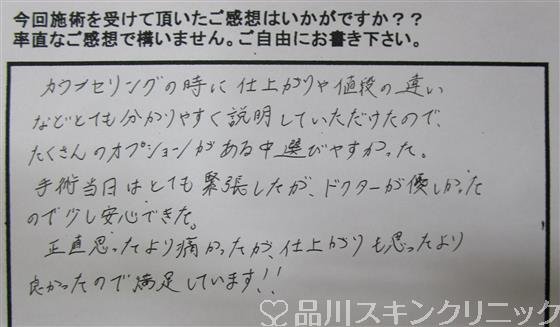 今回施術を受けて頂いたご感想はいかがですか？？
率直なご感想で構いません。ご自由にお書き下さい。
カウンセリングの時に仕上がりや値段の違い
などとても分かりやすく説明していただけたので、
たくさんのオプションがある中選びやすかった。
手術当日はとても緊張したが、ドクターが優しかった
ので少し安心できた。
正直思ったより痛かったが、仕上がりも思ったより
良かったので満足しています!!
品川スキンクリニック